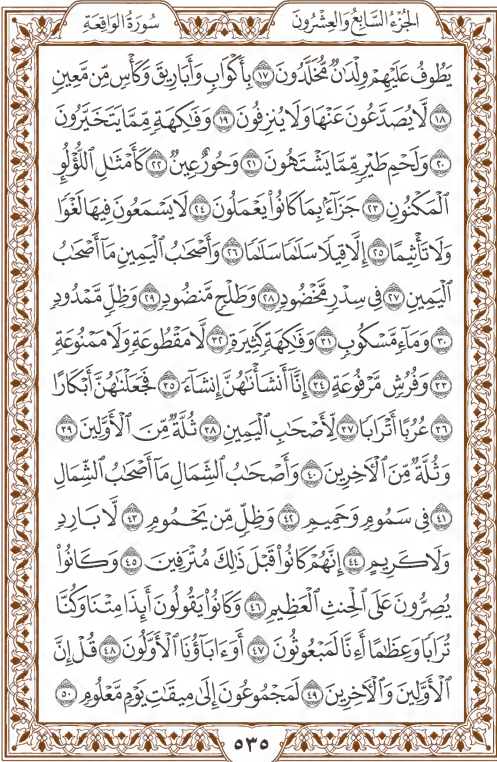 الجُزْءُ السَّابِعُ وَالعِشْرُونَ
سُورَةُ الوَاقِعَةِ
يَطُوفُ عَلَيْهِمْ وِلْدَٰنٌ مُّخَلَّدُونَ ١٧ بِأَكْوَابٍ وَأَبَارِيقَ وَكَأْسٍ مِّن مَّعِينٍ
١٨ لَّا يُصَدَّعُونَ عَنْهَا وَلَا يُنزِفُونَ ١٩ وَفَٰكِهَةٍ مِّمَّا يَتَخَيَّرُونَ
٢٠ وَلَحْمِ طَيْرٍ مِّمَّا يَشْتَهُونَ ٢١ وَحُورٌ عِينٌ ٢٢ كَأَمْثَٰلِ اللُّؤْلُوِٕ
الْمَكْنُونِ ٢٣ جَزَآءًۢ بِمَا كَانُوا۟ يَعْمَلُونَ ٢٤ لَا يَسْمَعُونَ فِيهَا لَغْوًا
وَلَا تَأْثِيمًا ٢٥ إِلَّا قِيلًا سَلَٰمًا سَلَٰمًا ٢٦ وَأَصْحَٰبُ الْيَمِينِ مَآ أَصْحَٰبُ
الْيَمِينِ ٢٧ فِى سِدْرٍ مَّخْضُودٍ ٢٨ وَطَلْحٍ مَّنضُودٍ ٢٩ وَظِلٍّ مَّمْدُودٍ
٣٠ وَمَآءٍ مَّسْكُوبٍ ٣١ وَفَٰكِهَةٍ كَثِيرَةٍ ٣٢ لَّا مَقْطُوعَةٍ وَلَا مَمْنُوعَةٍ
٣٣ وَفُرُشٍ مَّرْفُوعَةٍ ٣٤ إِنَّآ أَنشَأْنَٰهُنَّ إِنشَآءً ٣٥ فَجَعَلْنَٰهُنَّ أَبْكَارًا
٣٦ عُرُبًا أَتْرَابًا ٣٧ لِّأَصْحَٰبِ الْيَمِينِ ٣٨ ثُلَّةٌ مِّنَ الْأَوَّلِينَ ٣٩
وَثُلَّةٌ مِّنَ الْءَاخِرِينَ ٤٠ وَأَصْحَٰبُ الشِّمَالِ مَآ أَصْحَٰبُ الشِّمَالِ
٤١ فِى سَمُومٍ وَحَمِيمٍ ٤٢ وَظِلٍّ مِّن يَحْمُومٍ ٤٣ لَّا بَارِدٍ
وَلَا كَرِيمٍ ٤٤ إِنَّهُمْ كَانُوا۟ قَبْلَ ذَٰلِكَ مُتْرَفِينَ ٤٥ وَكَانُوا۟
يُصِرُّونَ عَلَى الْحِنثِ الْعَظِيمِ ٤٦ وَكَانُوا۟ يَقُولُونَ أَئِذَا مِتْنَا وَكُنَّا
تُرَابًا وَعِظَٰمًا أَءِنَّا لَمَبْعُوثُونَ ٤٧ أَوَءَابَآؤُنَا الْأَوَّلُونَ ٤٨ قُلْ إِنَّ
الْأَوَّلِينَ وَالْءَاخِرِينَ ٤٩ لَمَجْمُوعُونَ إِلَىٰ مِيقَٰتِ يَوْمٍ مَّعْلُومٍ ٥٠
٥٣٥